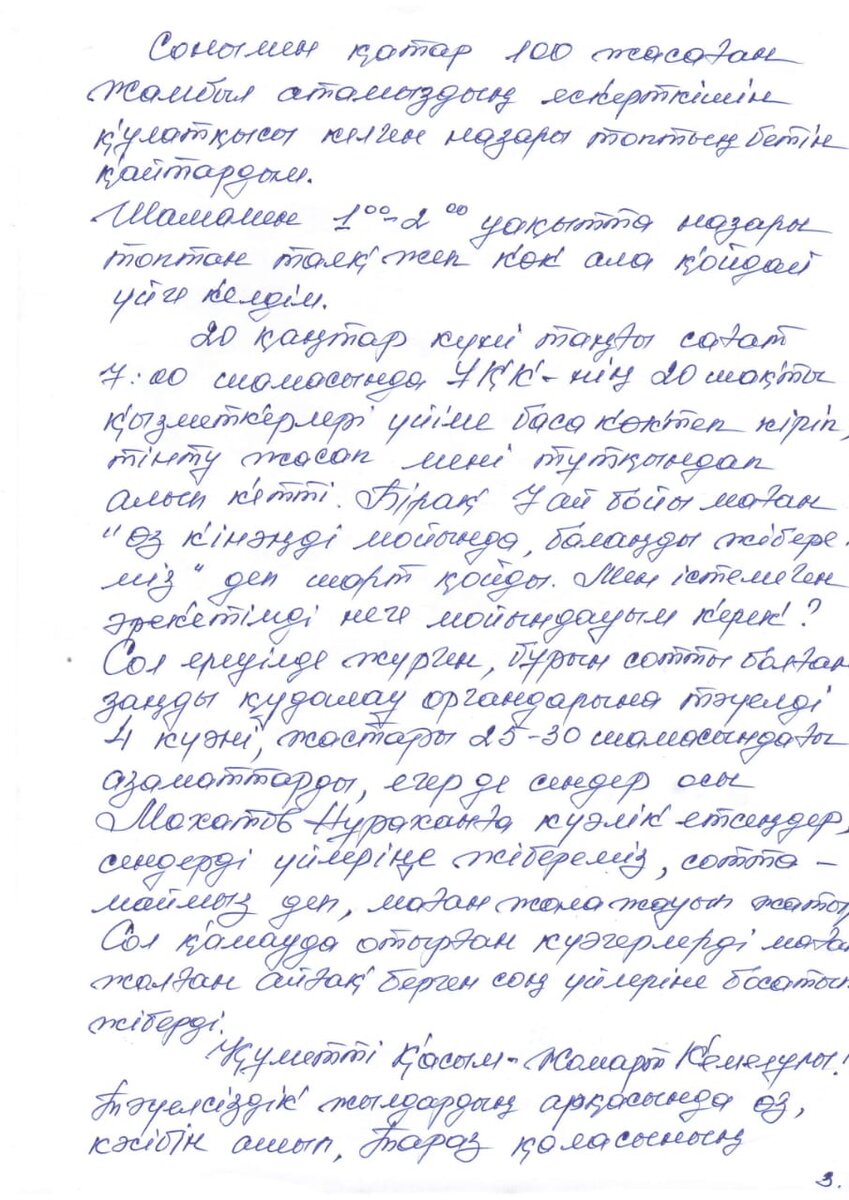 Сонымен қатар 100 жасаған
Жамбыл атамыздың ескерткішін
құлатқысы келген назары топтың бетін
қайтардым.
Шамамен 1⁰⁰-2⁰⁰ уақытта назары
топтан таяқ жеп көк ала қойдай
үйге келдім.
20 қаңтар күні таңғы сағат
7:00 шамасында ҰҚК-нің 20 шақты
қызметкерлері үйіме баса көктеп кіріп,
тінту жасап мені тұтқындап
алып кетті. Бірақ 7 ай бойы маған
"өз кінәңді мойында, балаңды жібере-
міз" деп шарт қойды. Мен істемеген
әрекетімді неге мойындауым керек?
Сол ереуілде жүрген, бұрын сотты болған
заңды қудалау органдарына тәуелді
4 куәні, жастары 25-30 шамасындағы
азаматтарды, егер де сендер осы
Махатов Нураханға куәлік етсеңдер,
сендерді үйлеріңе жібереміз, сотта-
маймыз деп, маған жала жауып жатыр
Сол қамауда отырған куәгерлерді маған
жалған айғақ берген соң үйлеріне босатып
жіберді.
Құметті Қасым-Жомарт Кемелұлы!
Тәуелсіздік жылдардың арқасында өз,
кәсібін ашып, Тараз қаласының
3.